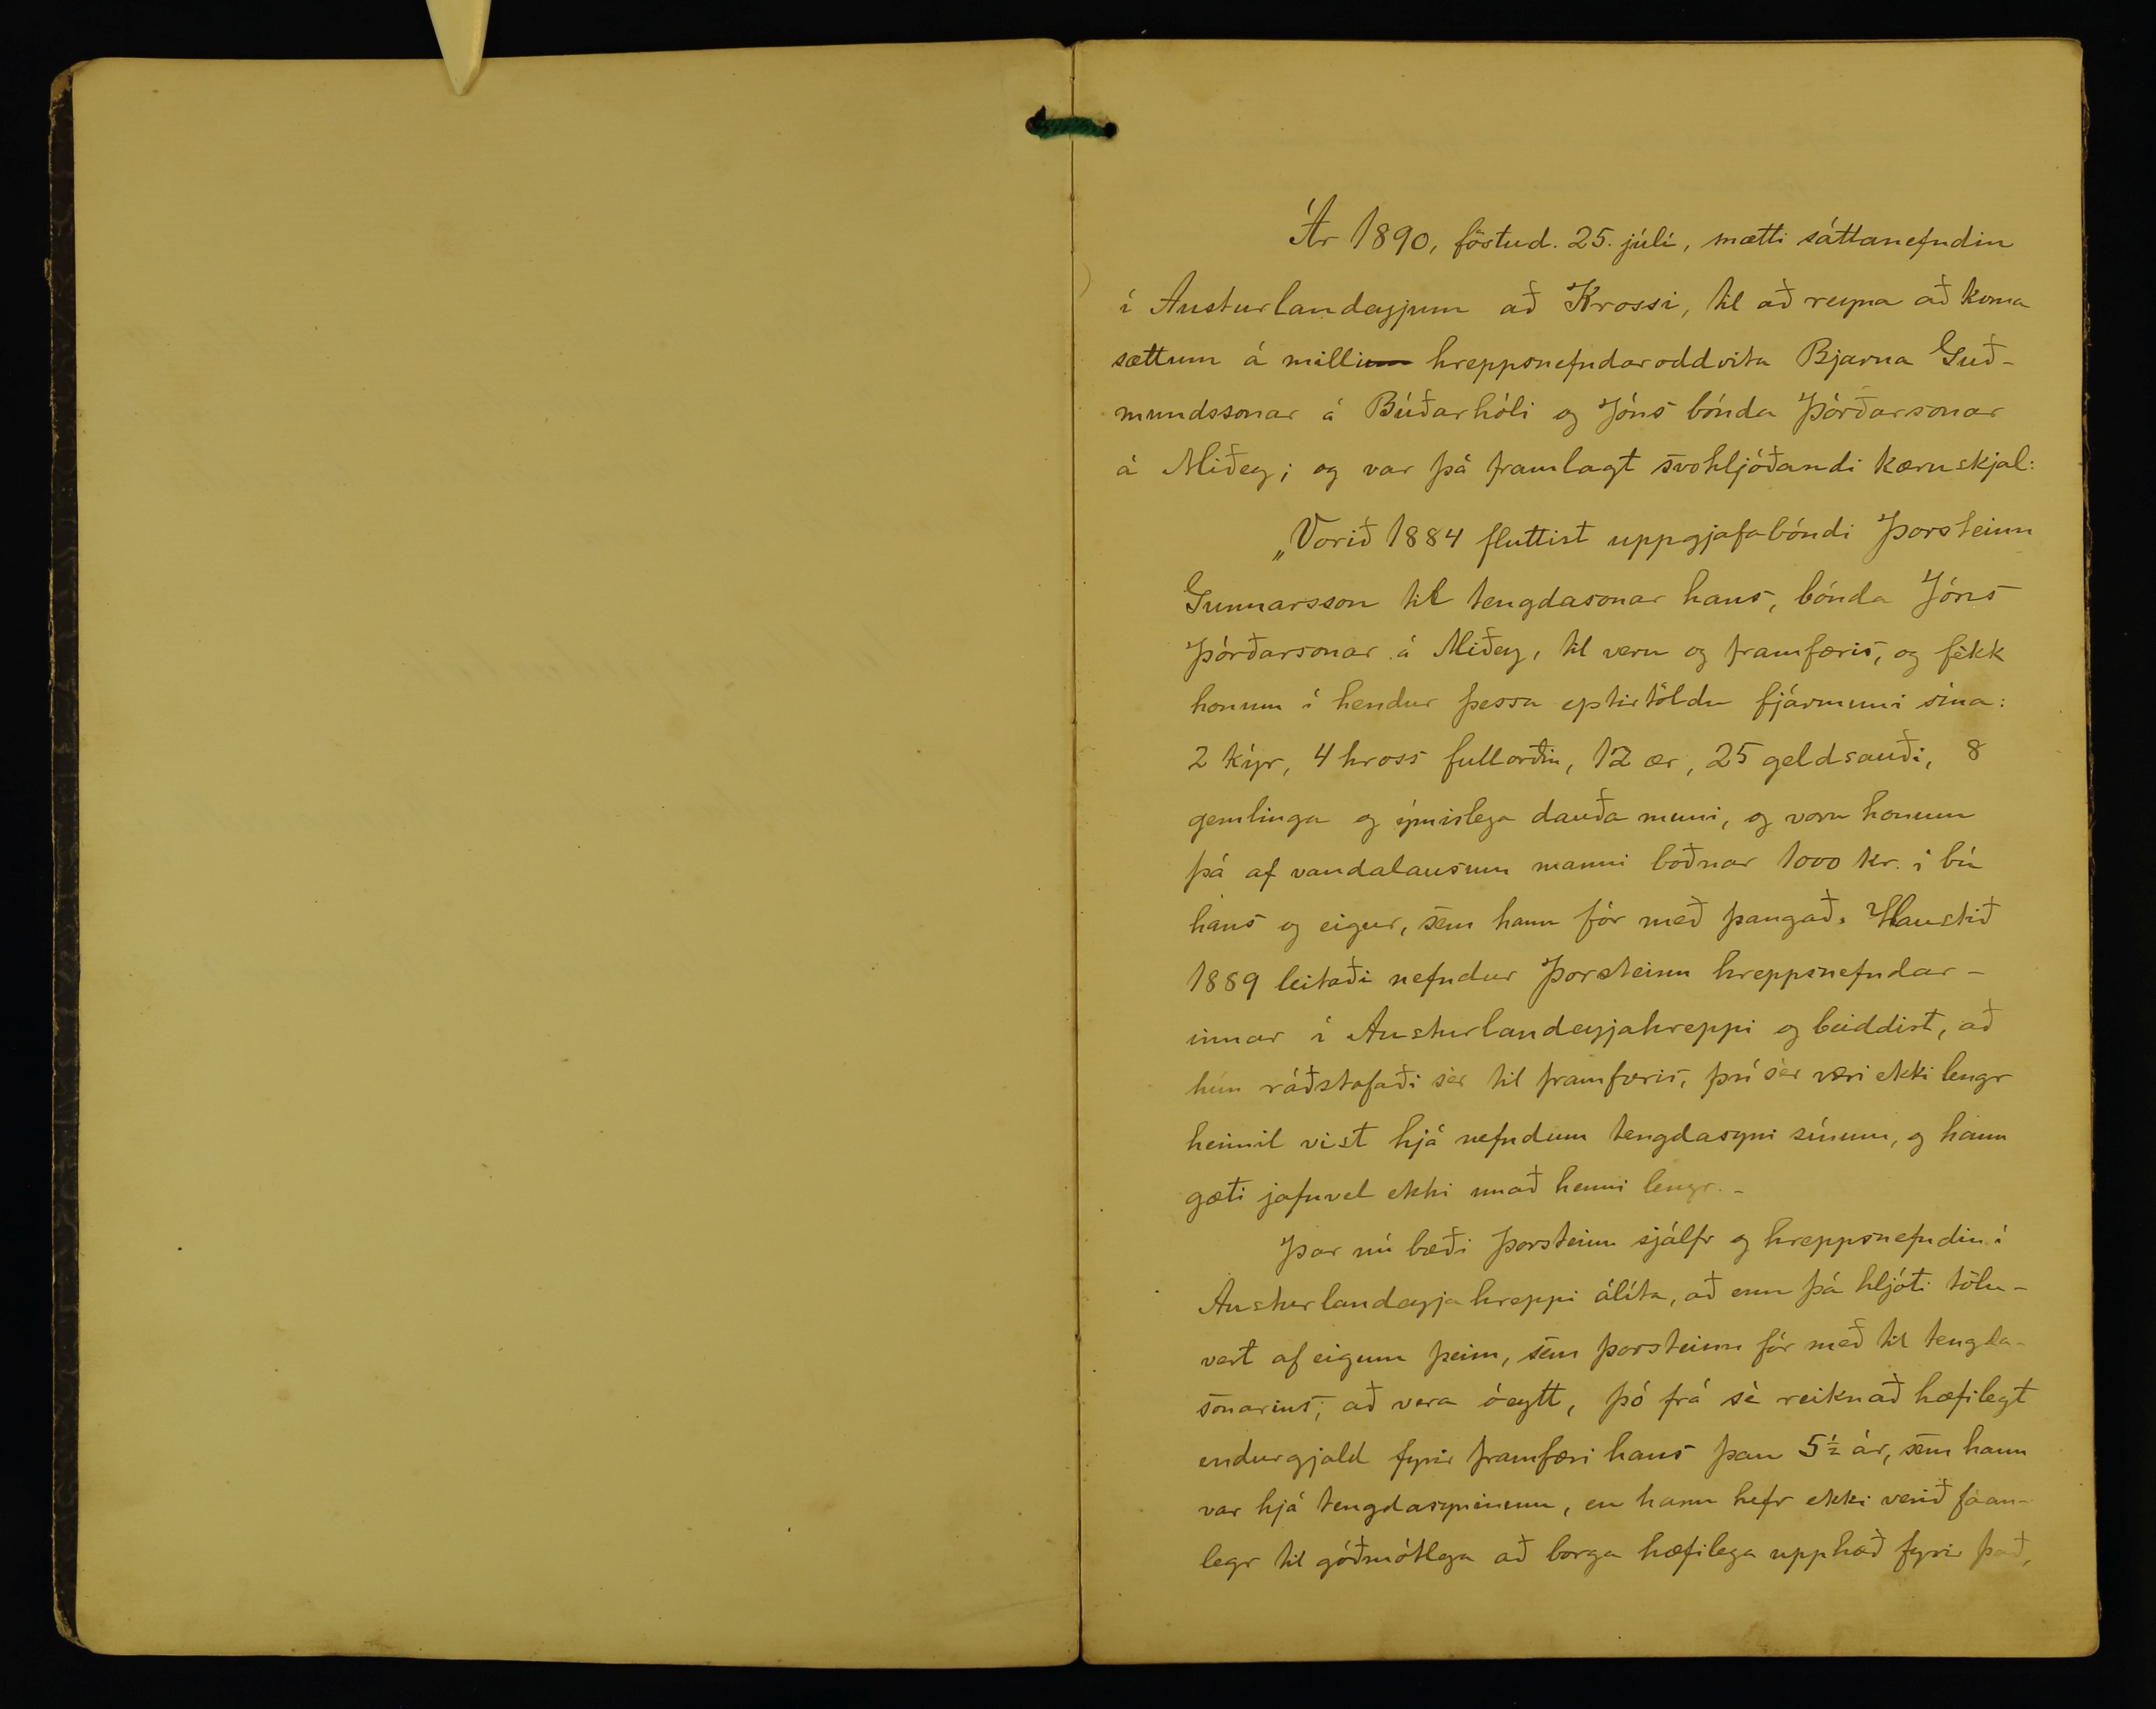 Ár 1890, föstud. 25. júlí, mætti sáttanefndin
í Austurlandeyjum að Krossi, til að reyna að koma
sættum á millum hreppsnefndaroddvita Bjarna Guð-
mundssonar á Búðarhóli og Jóns bónda Þórðarsonar
á Miðey; og var þá framlagt svohljóðandi kæruskjal:
„Vorið 1884 fluttist uppgjafabóndi Þorsteinn
Gunnarsson til tengdasonar hans, bónda Jóns
Þórðarsonar á Miðey, til veru og framfæris, og fèkk
honum í hendur þessa eptirtöldu fjármuni sína:
2 kýr, 4 hross fullorðin, 12 ær, 25 geldsauði, 8
gemlinga og ýmislega dauða muni, og voru honum
þá af vandalausum manni boðnar 1000 kr. í bú
hans og eigur, sem hann fór með þangað. Haustið
1889 leitaði nefndur Þorsteinn hreppsnefndar-
innar í Austurlandeyjahreppi og beiddist, að
hún ráðstafaði sèr til framfæris, því sèr væri ekki lengr
heimil vist hjá nefndum tengdasyni sínum, og hann
gæti jafnvel ekki unað henni lengr.-
Þar nú bæði Þorsteinn sjálfr og hreppsnefndin í
Austurlandeyjahreppi álíta, að enn þá hljóti tölu-
vert af eigum þeim, sem Þorsteinn fór með til tengda-
sonarins, að vera óeytt, þó frá sè reiknað hæfilegt
endurgjald fyrir framfæri hans þau 5 1/2 ár, sem hann
var hjá tengdasyninum, en hann hefr ekki verið fáan-
legr til góðmótlega að borga hæfilega upphæð fyrir það,